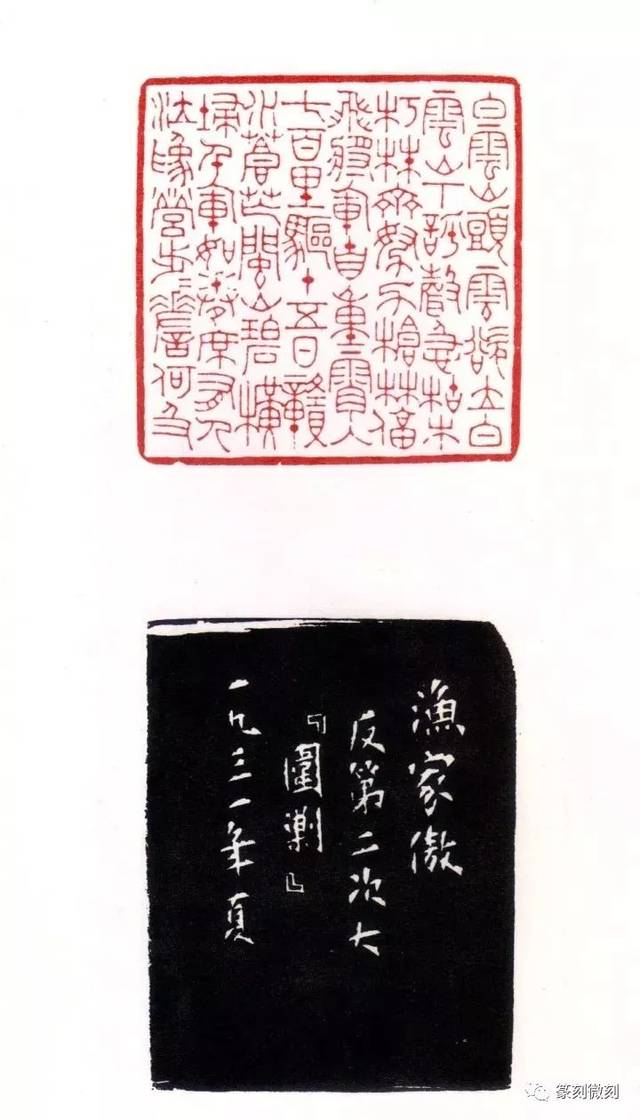 白雲山頭雲欲立白
雲山下呼聲急枯木
朽株齊努力槍林逼
飛將軍自重霄入
七百里驅十五日贛
水蒼茫閩山碧橫
掃千軍如卷席有人
泣為營步步嗟何及
漁家傲
反第二次大
『圍剿』
一九三一年夏
篆刻微刻